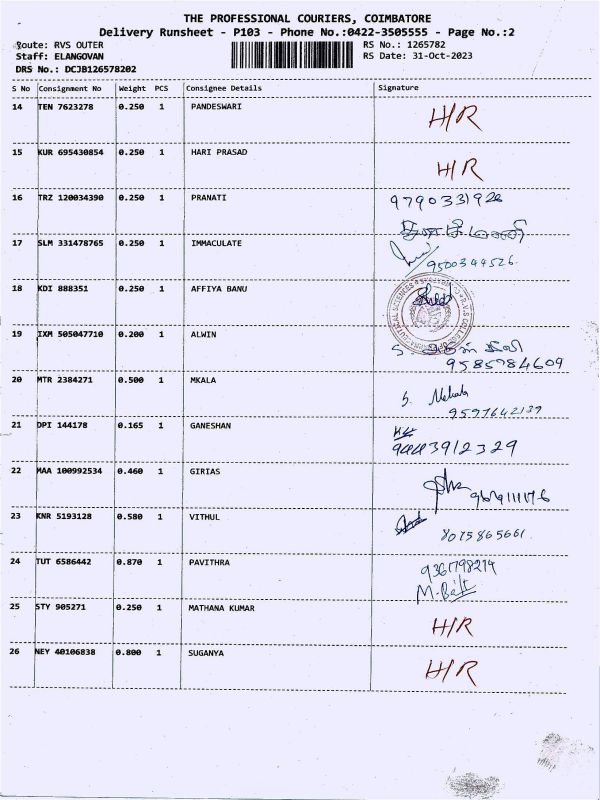 THE PROFESSIONAL COURIERS, COIMBATORE
Delivery Runsheet - P103 - Phone No.:0422-3505555 - Page No.:2
Route: RVS OUTER RS No.: 1265782
Staff: ELANGOVAN RS Date: 31-Oct-2023
DRS No.: DCJB126578202
S No Consignment No Weight PCS Consignee Details Signature
14 TEN 7623278 0.250 1 PANDESWARI H/R
15 KUR 695430854 0.250 1 HARI PRASAD H/R
16 TRZ 120034390 0.250 1 PRANATI 9790331926
17 SLM 331478765 0.250 1 IMMACULATE
9500344526
18 KDI 888351 0.250 1 AFFIYA BANU
19 IXM 505047710 0.200 1 ALWIN
9585784609
20 MTR 2384271 0.500 1 MKALA S.
9597642137
21 DPI 144178 0.165 1 GANESHAN
9443912329
22 MAA 100992534 0.460 1 GIRIAS
23 KNR 5193128 0.580 1 VITHUL
8075865661
24 TUT 6586442 0.870 1 PAVITHRA 9361798214
25 STY 905271 0.250 1 MATHANA KUMAR H/R
26 NEY 40106838 0.800 1 SUGANYA H/R